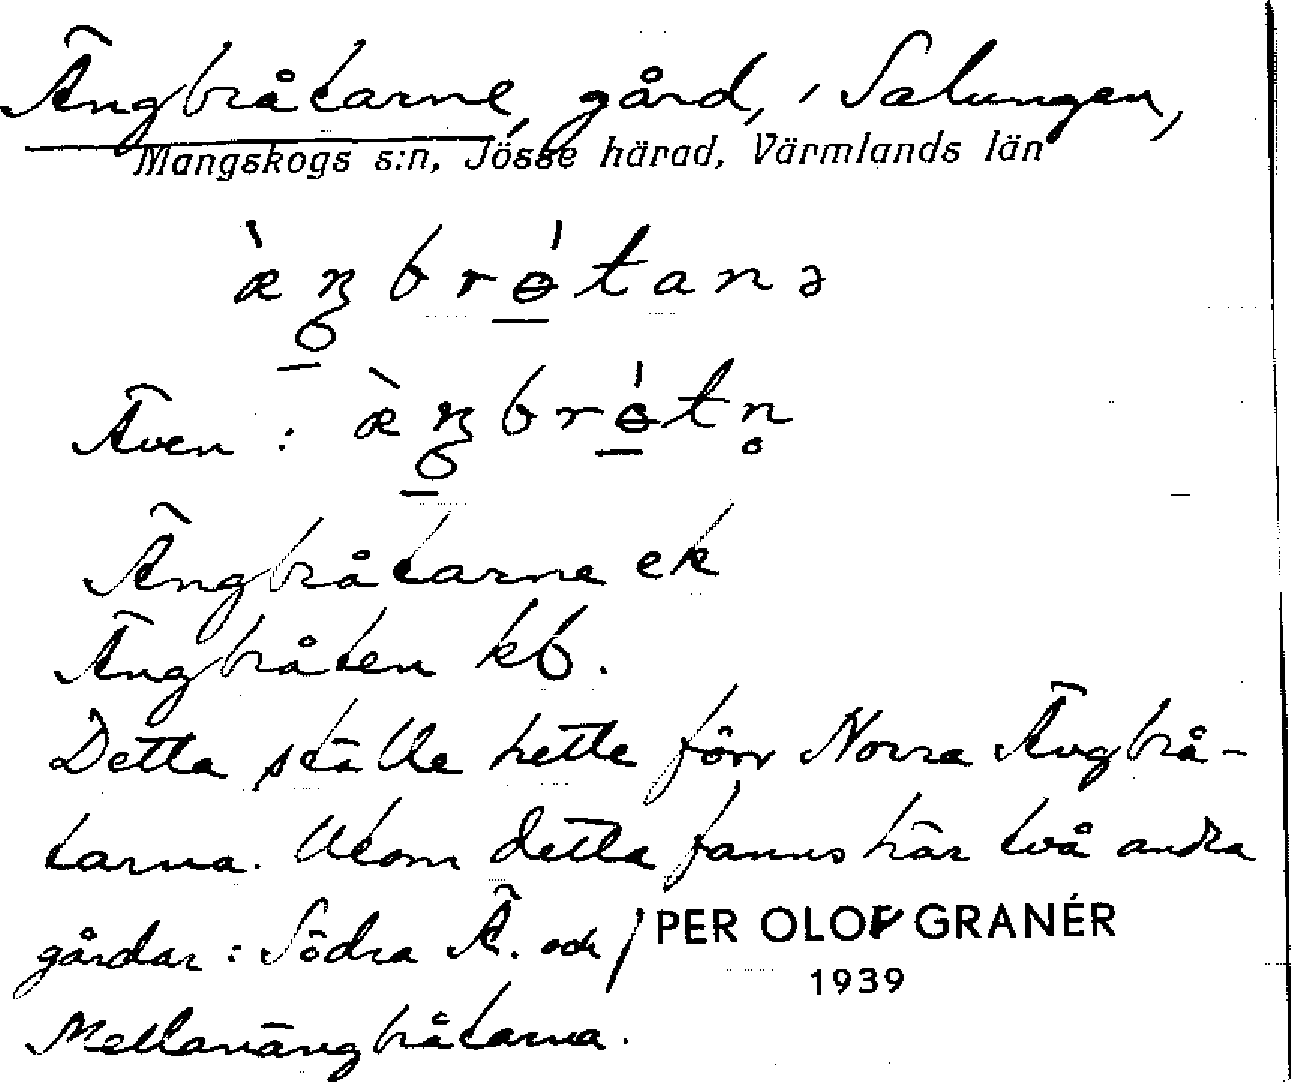 Ängbråtarne, gård, i Salungen,
Mangskogs s:n, Jösse härad, Värmlands län
Även :
Ängbråtarne ek
Ängbråten kb.
Detta ställe hette förr Norra Ängbrå-
tarna. Utom detta fanns här två andra
gårdar : Södra Ä. och
PER OLOF GRANÉR
1939
Mellanängbråtarna.